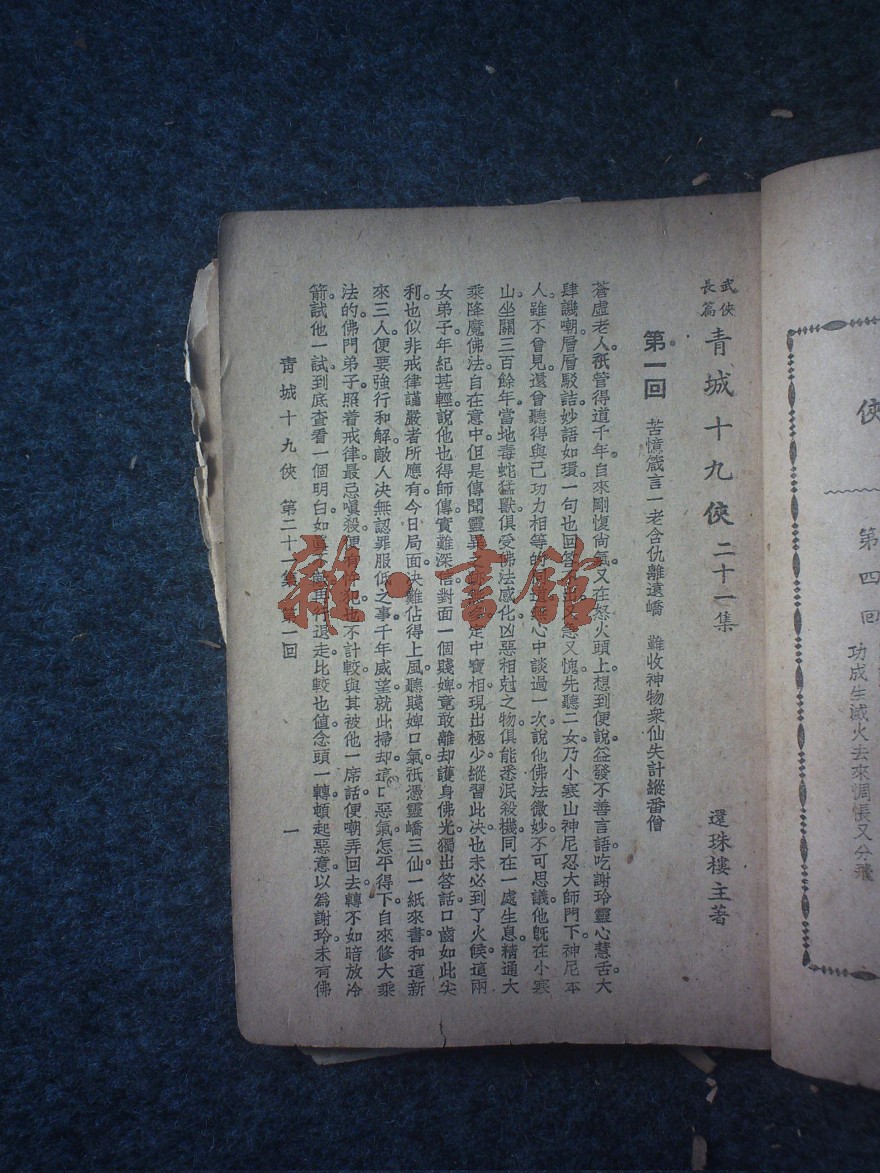 俠
第四回
功成生滅火去來惆悵又分飛
武俠長篇 青城十九俠 二十一集
還珠樓主著
第一回 苦憶箴言一老含仇離遠嶠 難收神物衆仙失計縱番僧
蒼虛老人。祇管得道千年。自來剛愎尚氣。又在怒火頭上。想到便說。益發不善言語。吃謝玲靈心慧舌。大
肆譏嘲。層層駁詰。妙語如環。一句也回答 又愧。先聽二女乃小寒山神尼忍大師門下。神尼本
人。雖不曾見。還曾聽得與己功力相等的 心中談過一次。說他佛法微妙。不可思議。他旣在小寒
山坐關三百餘年。當地毒蛇猛獸。俱受佛法感化。凶惡相尅之物。俱能悉泯殺機。同在一處生息。精通大
乘降魔佛法。自在意中。但是傳聞靈異 定中寶相現出。極少縱習。此决也未必到了火候。這兩
女弟子年紀甚輕。說他也得師傳。實難深信。對面一個賤婢。竟敢離却護身佛光。獨出答話。口齒如此尖
利。也似非戒律謹嚴者所應有。今日局面。决難佔得上風。聽賤婢口氣。祇憑靈嶠三仙一紙來書。和這新
來三人。便要強行和解。敵人决無認罪服低之事。千年威望。就此掃却。這口惡氣。怎平得下。自來修大乘
法的佛門弟子。照着戒律。最忌嗔殺。便有 也不計較。與其被他一席話。便嘲弄回去。轉不如暗放冷
箭。試他一試。到底查看一個明白。如 再行退走。比較也值。念頭一轉。頓起惡意。以爲謝玲未有佛
青城十九俠 第二十一集 第一回 一
雜·書館